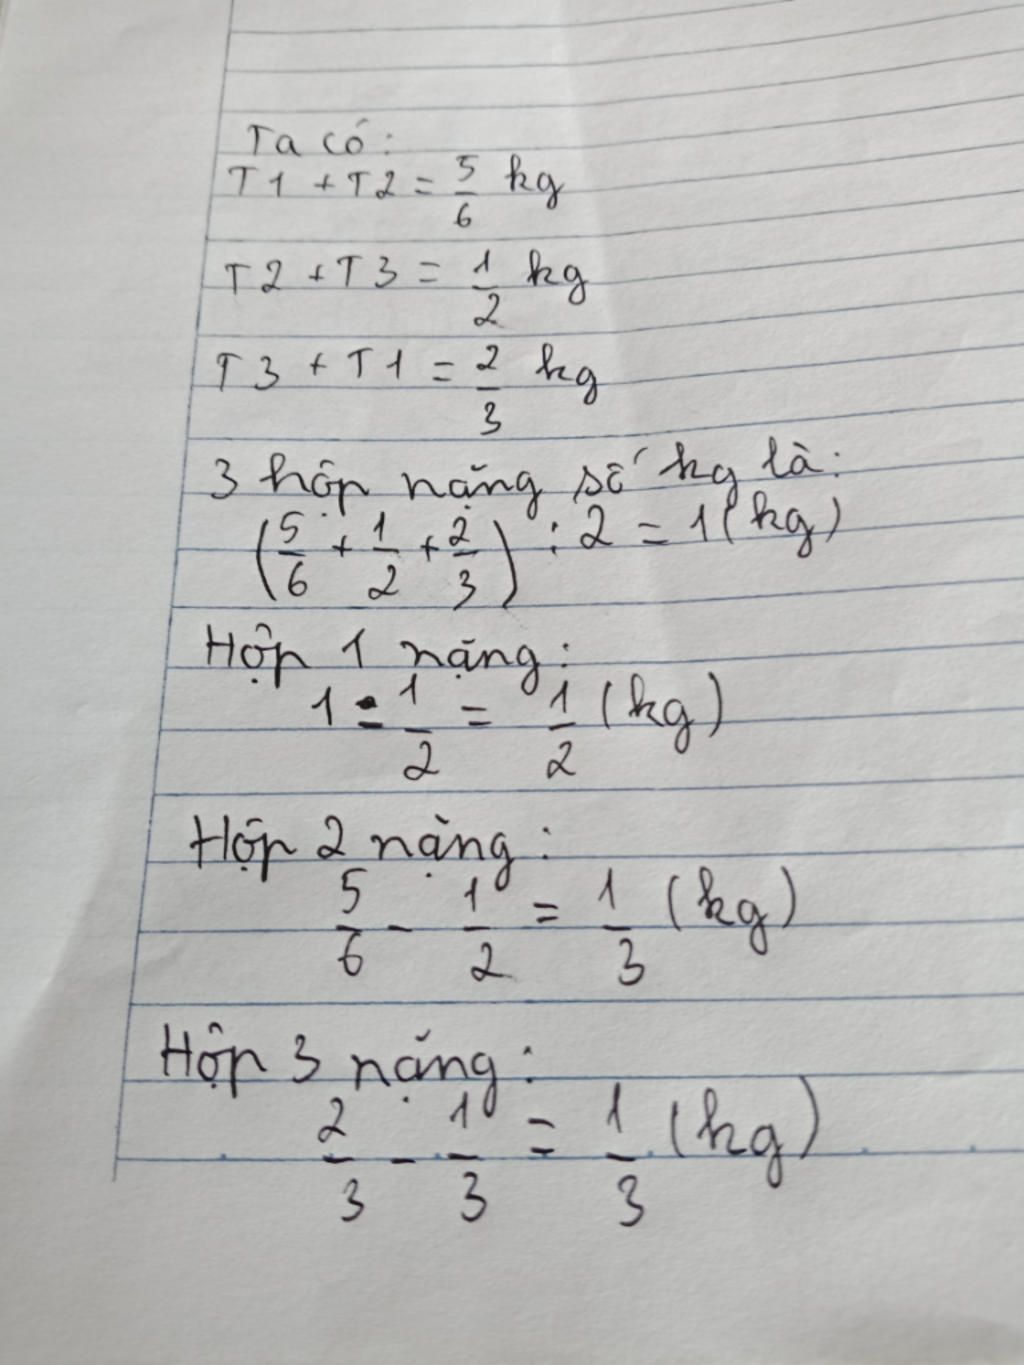 Ta có:
T1 + T2 = 5/6 kg
T2 + T3 = 1/2 kg
T3 + T1 = 2/3 kg
3 hộp nặng số kg là:
(5/6 + 1/2 + 2/3) : 2 = 1 (kg)
Hộp 1 nặng:
1 - 1/2 = 1/2 (kg)
Hộp 2 nặng:
5/6 - 1/2 = 1/3 (kg)
Hộp 3 nặng:
2/3 - 1/3 = 1/3 (kg)